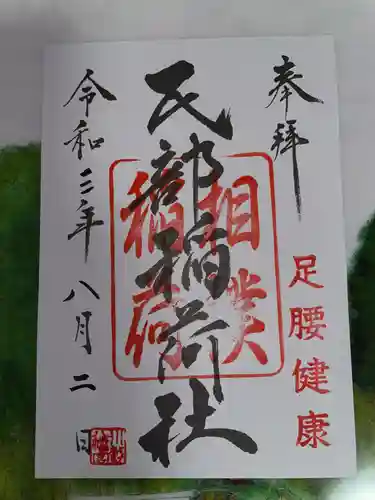 奉拝
足腰健康
民部稲荷社
相撲
稲荷
令和三年八月二日